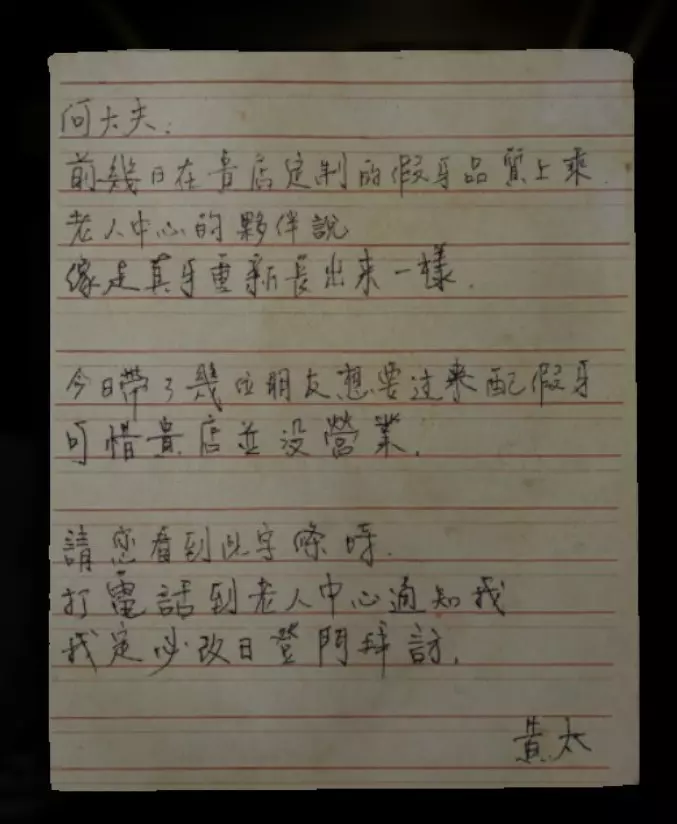 何大夫：
前幾日在貴店定制的假牙品質上乘.
老人中心的夥伴說
像是真牙重新長出來一樣.
今日帶了幾位朋友想要过来配假牙
可惜貴店並没營業.
請您看到此字條時.
打電話到老人中心通知我
我定必改日登門拜訪.
黄太